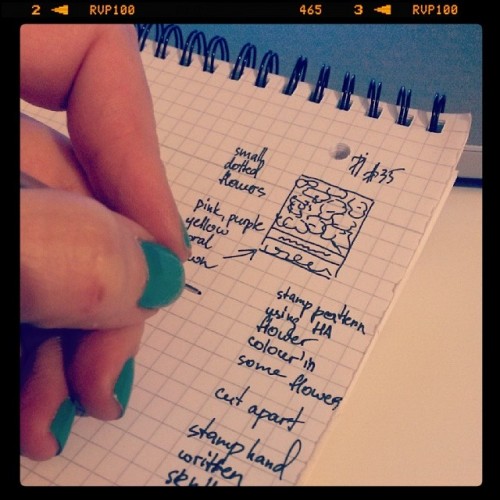 2 RVP100 465 3 RVP100
#35
small
dotted
flowers
pink, purple
yellow
stamp pattern
using HA
flower
colour in
some flowers
cut apart
stamp hand
written